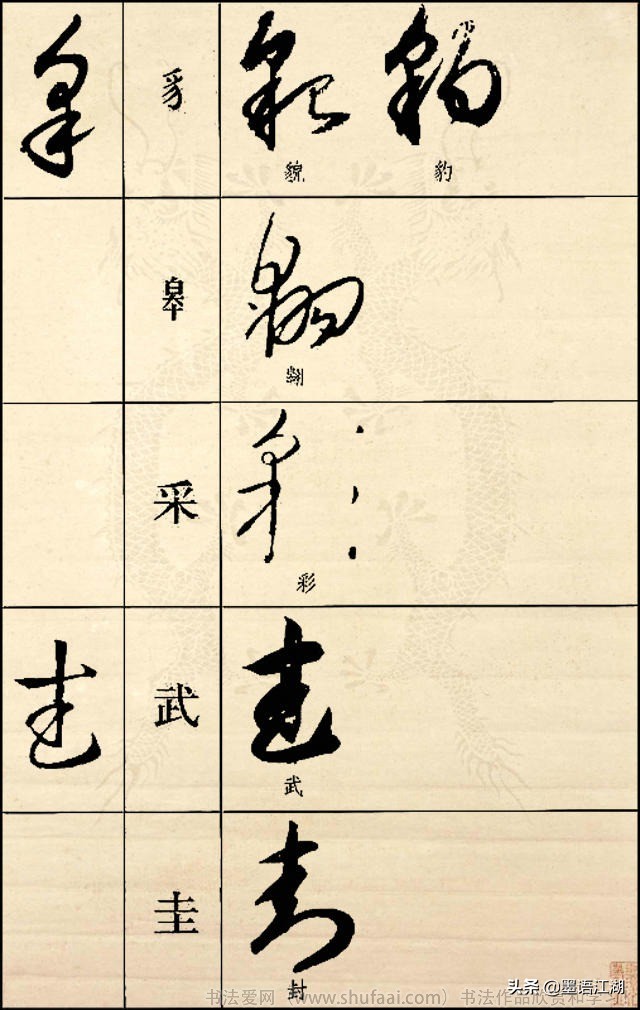 豸
貌 豹
皋
翱
采
彩
武
武
圭
封
书法爱网（www.shufaai.com）书法作品欣赏和学习
头条 @墨语江湖